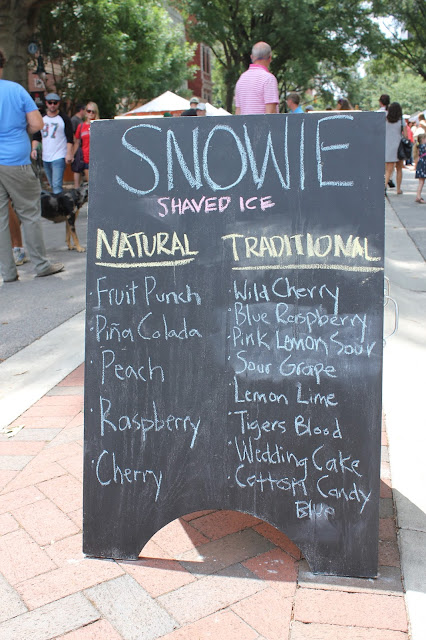 SNOWIE
SHAVED ICE
NATURAL
· Fruit Punch
· Piña Colada
· Peach
· Raspberry
· Cherry
TRADITIONAL
· Wild Cherry
· Blue Raspberry
· Pink Lemon Sour
· Sour Grape
· Lemon Lime
· Tigers Blood
· Wedding Cake
· Cotton Candy
Blue